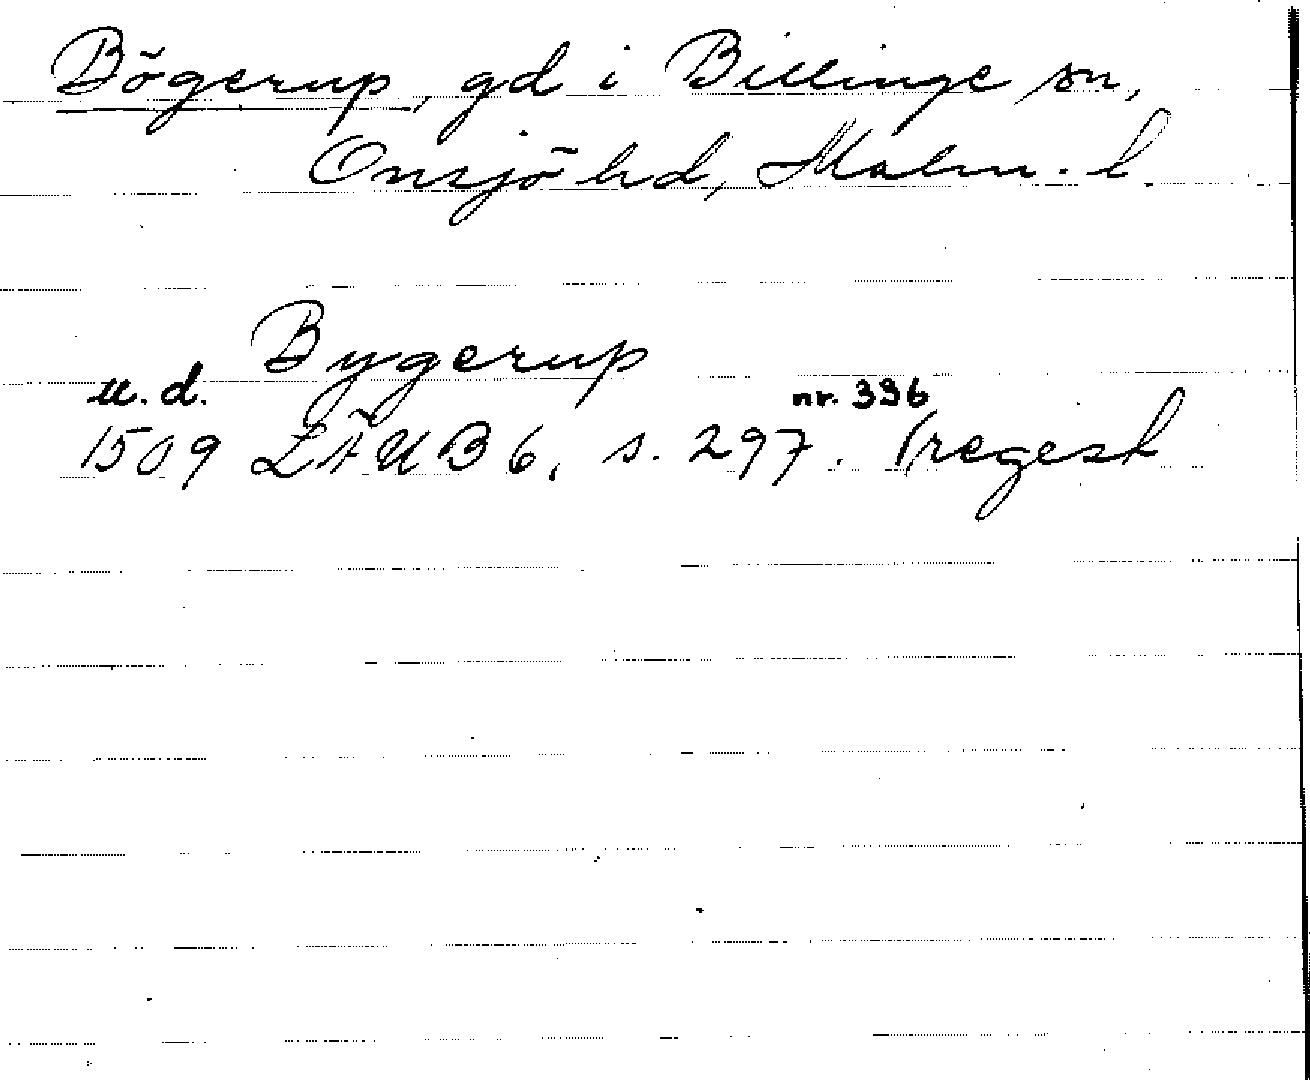 Bögerup, gd i Billinge sn,
Onsjö hd, Malm. l
Bygerup
u. d. nr. 396
1509 LÄUB 6, s. 297. (regest